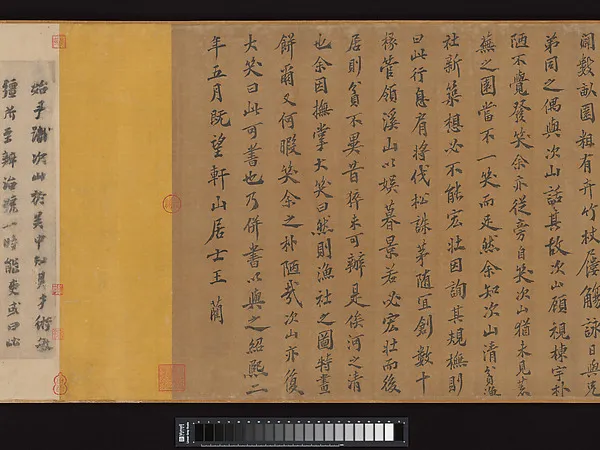 闢數畝園粗有卉竹杖屨觴詠日與兄
弟同之偶與次山話其故次山顧視棟宇朴
陋不覺發笑余亦從旁自笑次山猶未見荒
蕪之園當不一笑而足然余知次山清貧漁
社新築想必不能宏壯因詢其規橅則
曰此行息肩將伐松誅茅隨宜創數十
椽管領溪山以娛暮景若必宏壯而後
居則貧不異昔猝未可辦是俟河之清
也余因撫掌大笑曰然則漁社之圖特畫
餅爾又何暇笑余之朴陋哉次山亦復
大笑曰此可書也乃併書以與之紹熙二
年五月既望軒山居士王藺
始予識次山於吳中知其才術敏
彊所至辦治號一時能吏或曰此